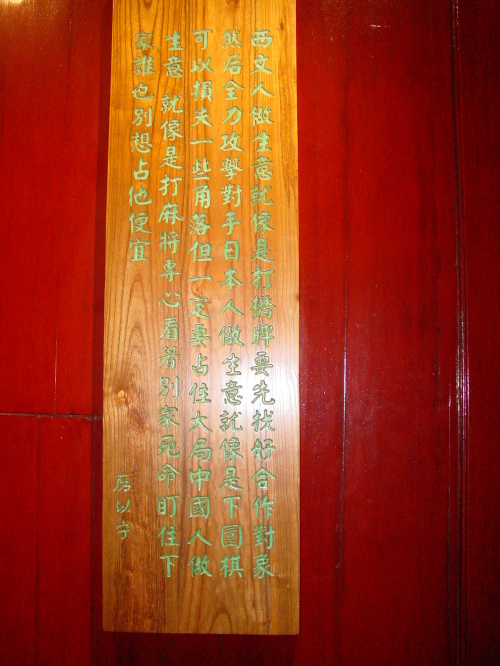 西文人做生意就像是打橋牌要先找好合作對象
然后全力攻擊對手日本人做生意就像是下圍棋
可以損失一些角落但一定要占住大局中國人做
生意就像是打麻將專心看著別家死命盯住下
家誰也別想占他便宜
厉以宁